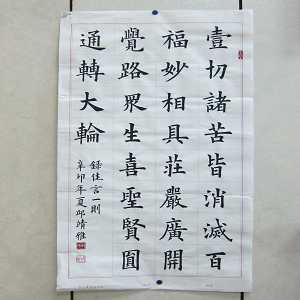 壹切諸苦皆消滅百
福妙相具莊嚴廣開
覺路眾生喜聖賢圓
通轉大輪
錄佳言一則
辛卯年夏邱靖雅